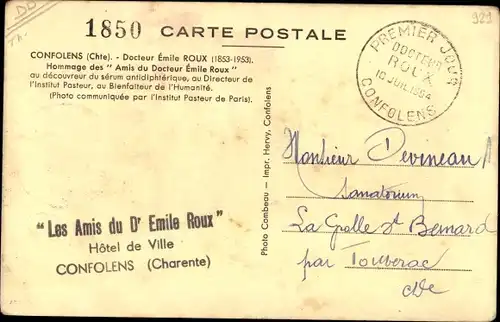 1850 CARTE POSTALE
929
CONFOLENS (Chte). - Docteur Émile ROUX (1853-1953).
Hommage des " Amis du Docteur Émile Roux "
au découvreur du sérum antidiphtérique, au Directeur de
l'Institut Pasteur, au Bienfaiteur de l'Humanité.
(Photo communiquée par l'Institut Pasteur de Paris).
PREMIER JOUR
DOCTEUR
ROUX
10 JUIL 1954
CONFOLENS
Photo Combeau — Impr. Hervy, Confolens
Monsieur Devineau
Sanatorium
La Grolle St Bernard
par Touverac
Cte
"Les Amis du Dr Emile Roux"
Hôtel de Ville
CONFOLENS (Charente)